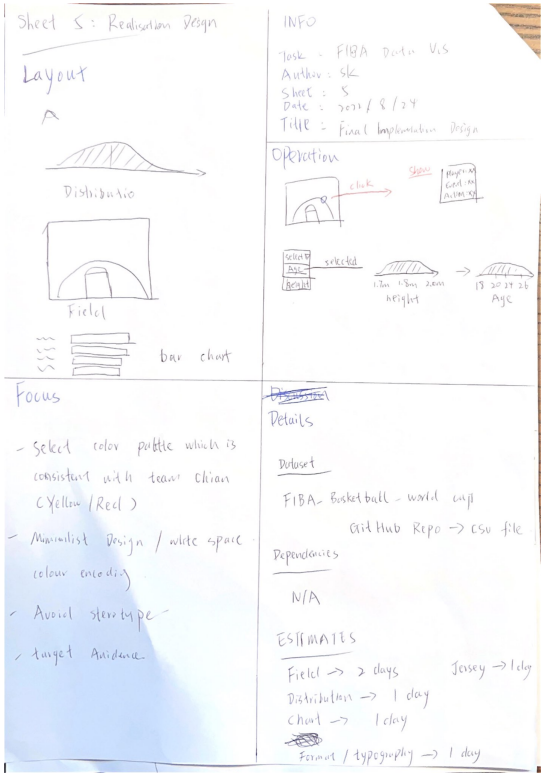 Sheet 5: Realisation Design
Layout
A
Distributio
Field
bar chart
INFO
Task: FIBA Data Vis
Author: sk
Sheet: 5
Date: 2022/8/24
Title: Final Implementation Design
Operation
click
Show
select
Age
Height
selected
1.7m 1.8m 2.0m
height
18 20 24 26
Age
Focus
- Select color palette which is
consistent with team Chian
(Yellow/Red)
- Minimilist Design / white space
colour encoding
- Avoid sterotype
- target Audience
Details
Dataset
FIBA-Basketball-world cup
GitHub Repo → csv file
Dependencies
N/A
ESTIMATES
Field → 2 days
Jersey → 1 day
Distribution → 1 day
Chart → 1 day
Format / typography → 1 day